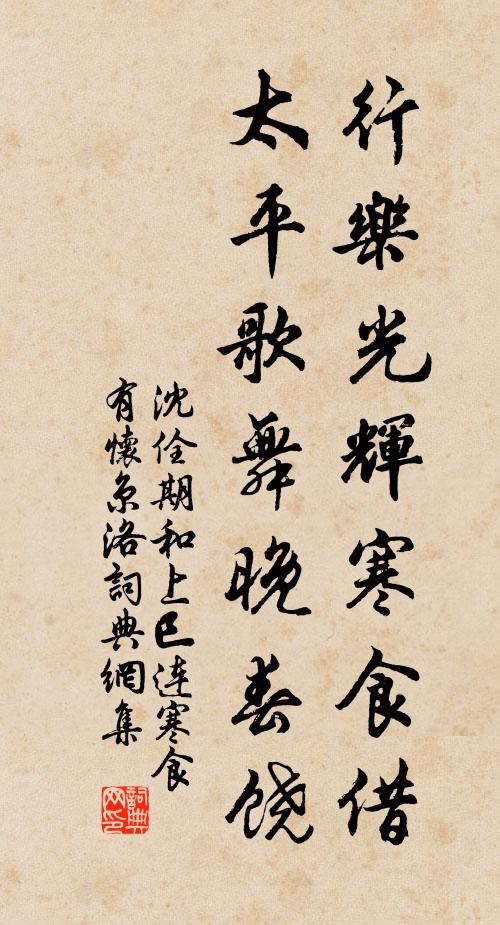 行樂光輝寒食借
太平歌舞晚春饶
沈佺期和上巳连寒食
有懷京洛詞典網集
詞典网印